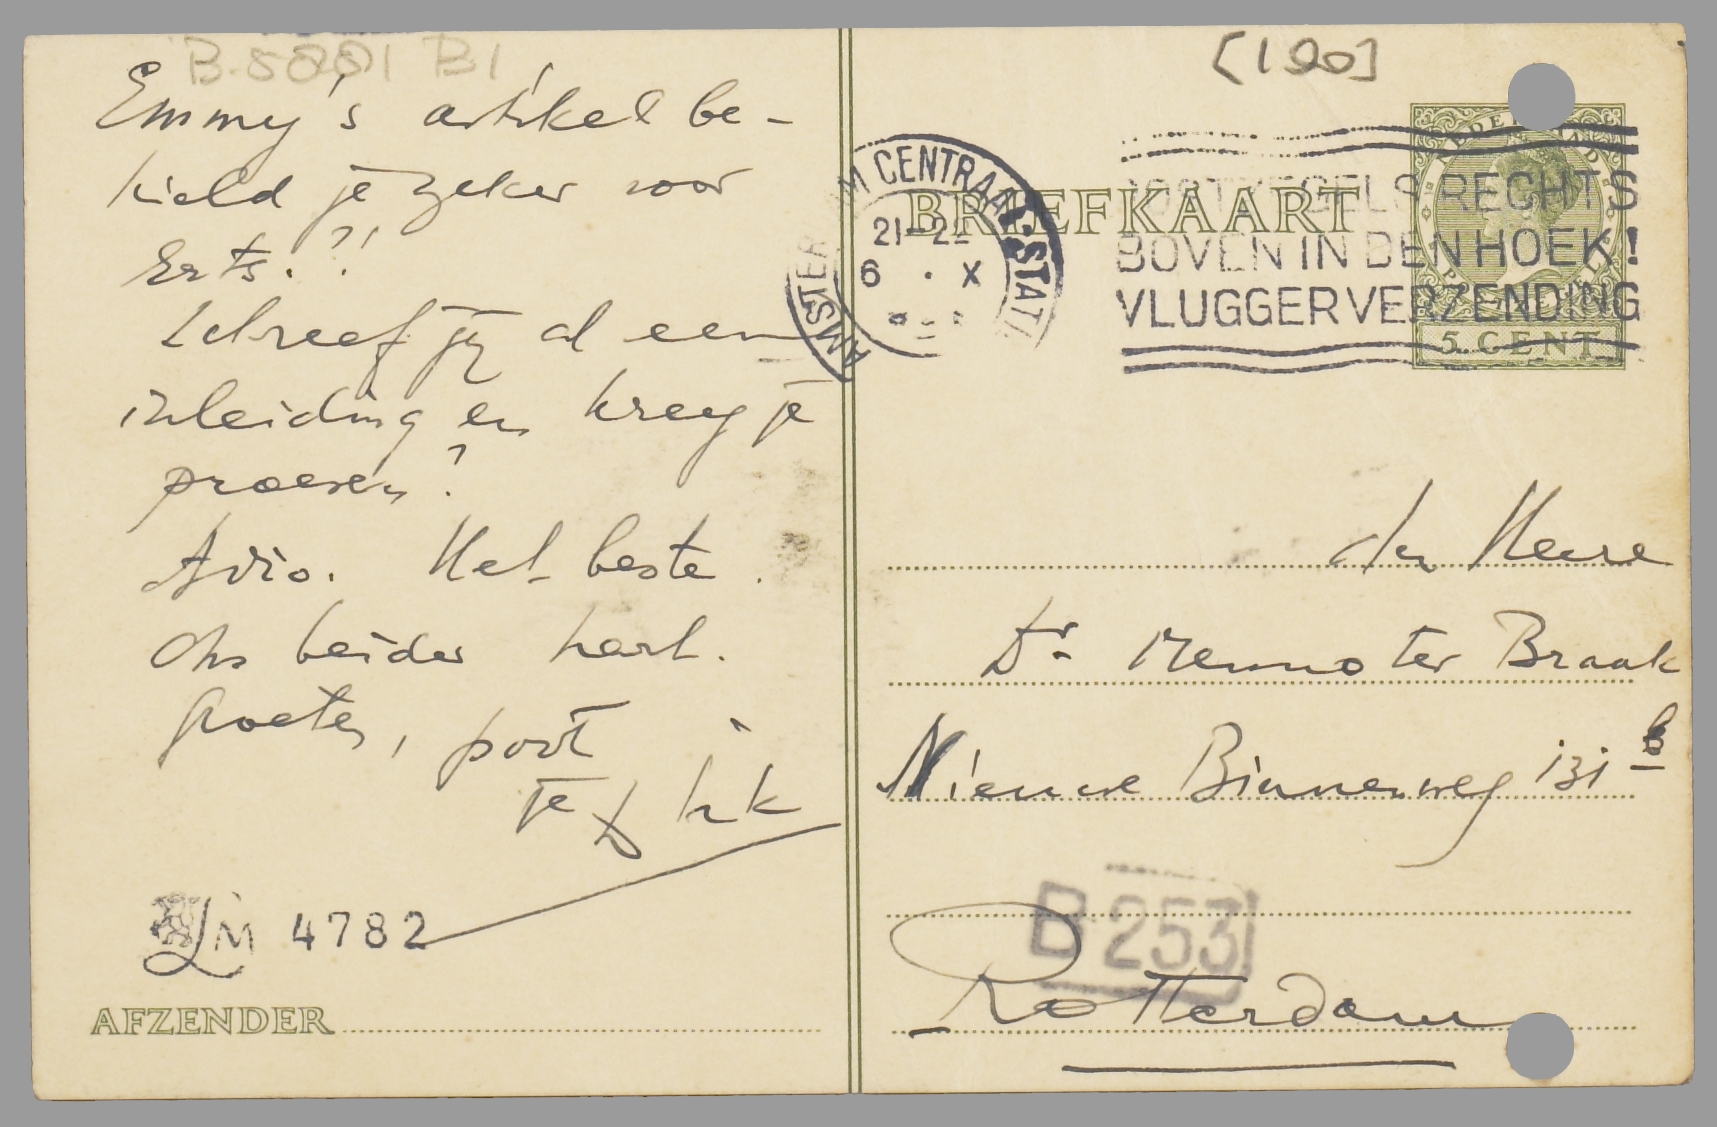 B.5001 B1
Emmy's artikel be-
hield je zeker voor
Erts.?!
Schreef jij al een
inleiding en kreeg je
proeven?
Adio. Het beste.
Ons beider hart.
groeten, poot
je
LM 4782
AFZENDER
[190]
NEDERLAND
BRIEFKAART
AMSTERDAM CENTRAAL STATI
21-22
6 . X
POSTZEGELS RECHTS
BOVEN IN DEN HOEK!
VLUGGER VERZENDING
5 CENT
den Heere
Dr Menno ter Braak
Nieuwe Binnenweg 131 B
B 253
Rotterdam